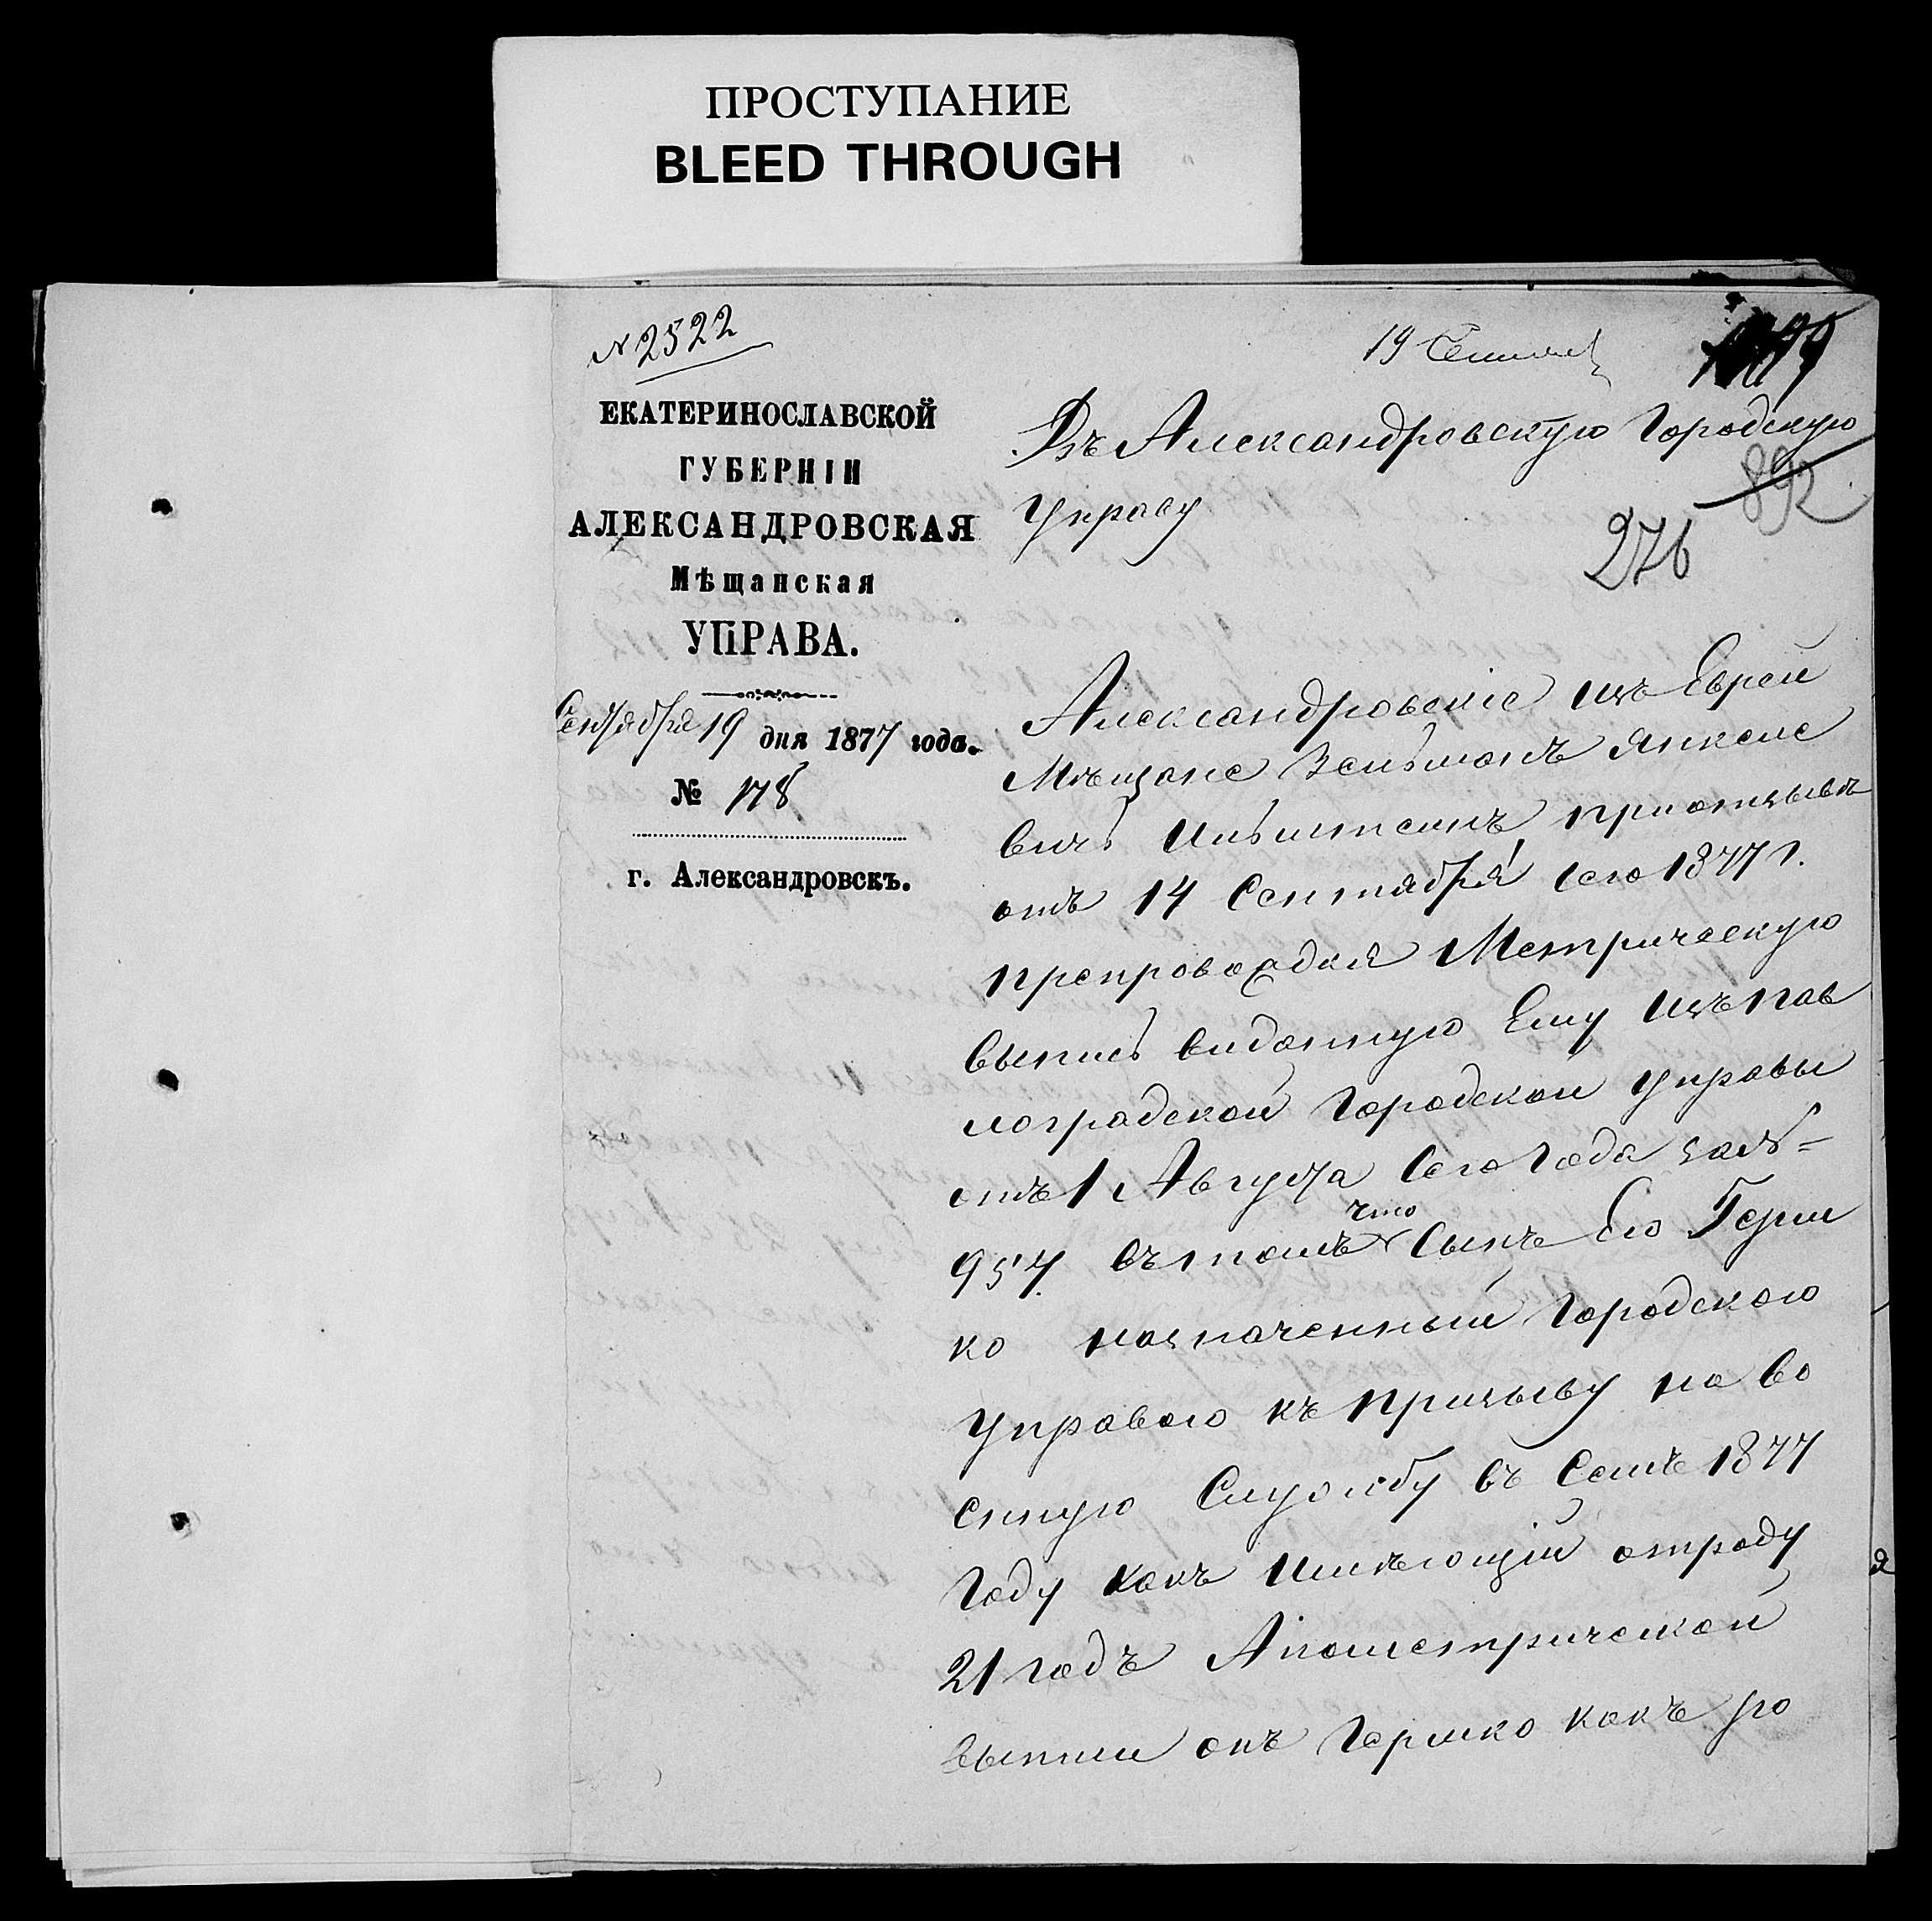 ПРОСТУПАНИЕ
BLEED THROUGH
№ 2522
19
ЕКАТЕРИНОСЛАВСКОЙ
ГУБЕРНІИ
АЛЕКСАНДРОВСКАЯ
Мѣщанская
УПРАВА.
Сентября 19 дня 1877 года.
№ 178
г. Александровскъ.
Въ Александровскую Городскую
892
Управу
276
Александровскіе изъ Еврей
Мѣщане Зельманъ Янкеле
вичъ при отзывѣ
отъ 14 Сентября сего 1877 г.
препровождая Метрическую
выпись виданную Ему изъ Пав
лоградской Городской Управы
отъ 1 Августа сего Года за №=
957. въ томъ что Сынъ Его Герш
ко назначенный Городского
Управою къ призыву на во
енную Службу въ Семъ 1877
Году какъ Имѣющій отроду
21 годъ А пометрической
выписи онъ Гершко какъ ро